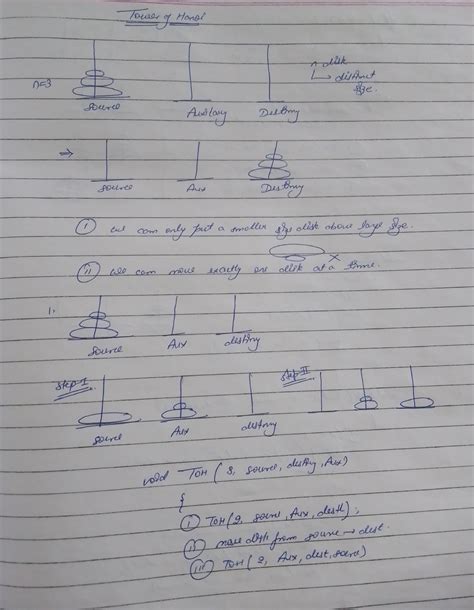 Tower of Hanoi
n=3
n disk
↳ distinct size.
source Auxiliary Destiny
⇒
source Aux Destiny
(i) we can only put a smaller size disk above large size.
x
(ii) we can move exactly one disk at a time.
1.
source Aux destiny
Step-I Step-II
source Aux destiny
void TOH ( 3, source, destiny, Aux)
{
(i) TOH( 2, source, Aux, dest);
(ii) move disk from source → dest.
(iii) TOH ( 2, Aux, dest, source)